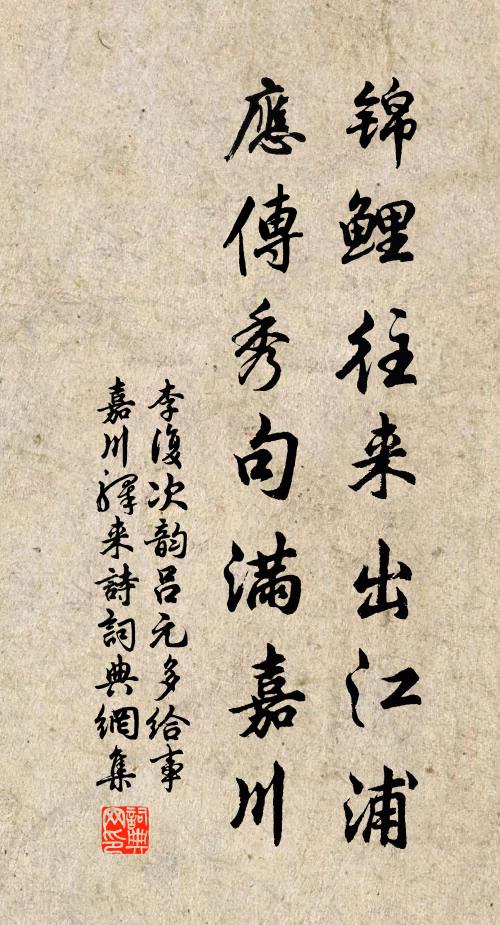 锦鲤往来出江浦
應傳秀句满嘉川
李復次韵吕元多给事
嘉川驛来詩詞典網集
詞典
网印